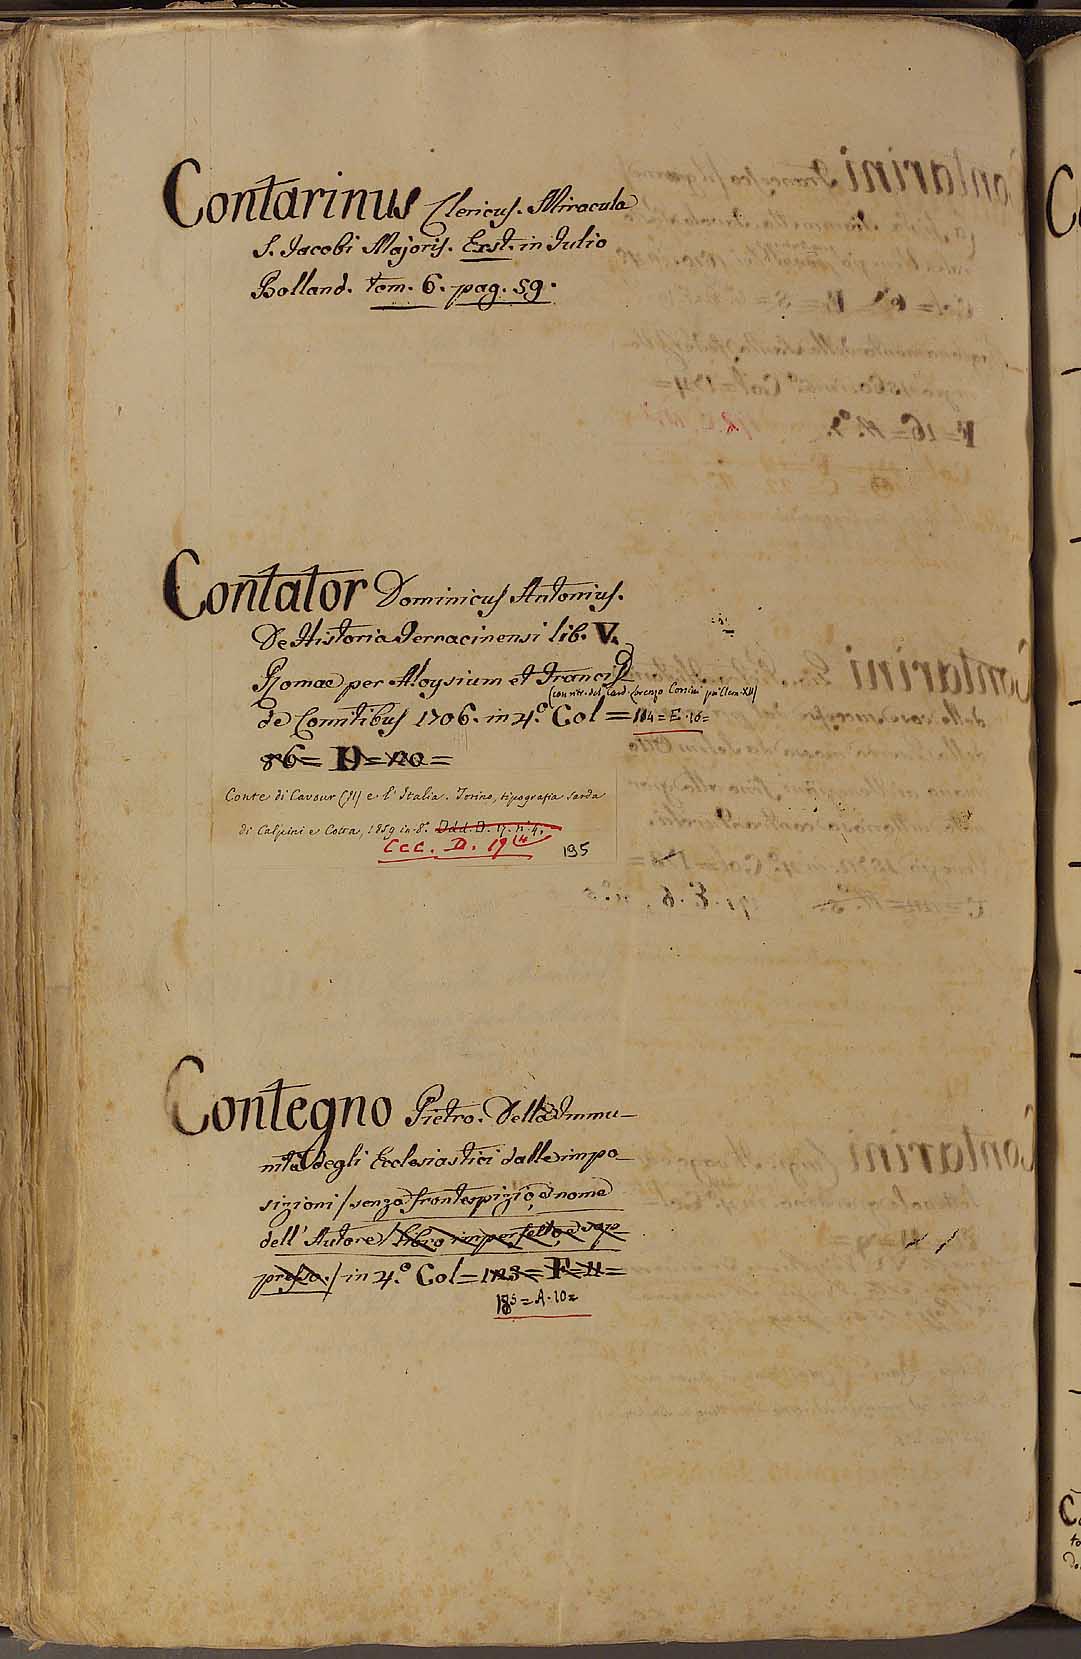 Contarinus Clericus. Miracula
S. Jacobi Majoris. Exst. in Julio
Bolland. tom. 6. pag. 59.
Contator Dominicus Antonius.
De Historia Terracinensi lib. V.
Romae per Aloysium et Francis
(con ritr. del Card. Lorenzo Corsini poi Clem. XII)
de Comitibus 1706. in 4.º Col = 184 = E. 16 =
86 = D = 120 =
Conte di Cavour (Il) e l'Italia. Torino, tipografia Sarda
di Calpini e Cotta, 1859 in 8.º Ddd. D. 17. n. 4.
Ccc. D. 19 14
195
Contegno Pietro. Della Immu-
nità degli Ecclesiastici dalle impo-
sizioni / senza frontespizio, e nome
dell'Autore / libro imperfetto e sop-
presso. / in 4.º Col = 123 = F = 11 =
185 = A. 10 =